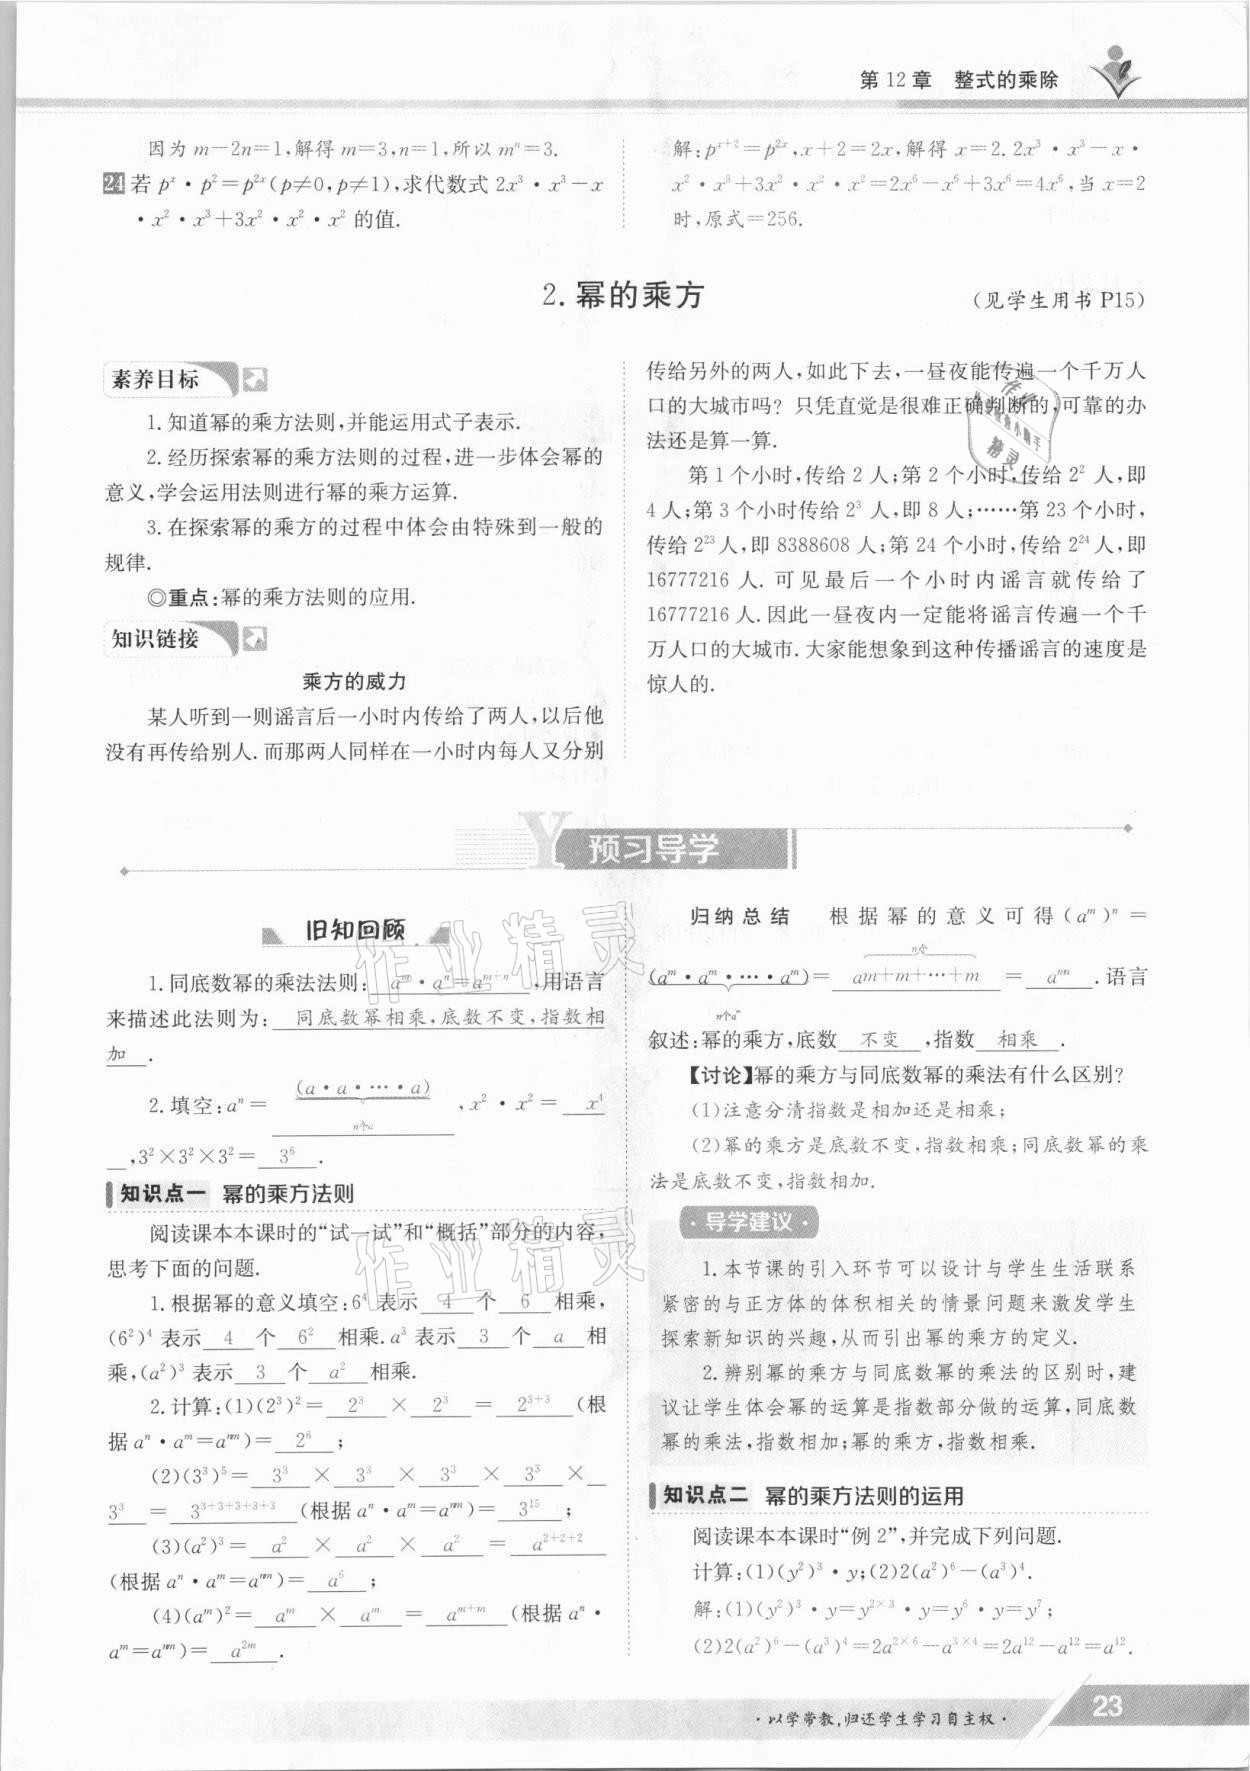 第12章 整式的乘除
因为 m-2n=1,解得 m=3,n=1,所以 mⁿ=3.
24 若 pˣ·p²=p²ˣ(p≠0,p≠1),求代数式 2x³·x³-x
·x²·x³+3x²·x²·x² 的值.
解:pˣ⁺²=p²ˣ,x+2=2x,解得 x=2. 2x³·x³-x·
x²·x³+3x²·x²·x²=2x⁶-x⁶+3x⁶=4x⁶,当 x=2
时,原式=256.
2. 幂的乘方
(见学生用书 P15)
素养目标
1. 知道幂的乘方法则,并能运用式子表示.
2. 经历探索幂的乘方法则的过程,进一步体会幂的
意义,学会运用法则进行幂的乘方运算.
3. 在探索幂的乘方的过程中体会由特殊到一般的
规律.
◎重点:幂的乘方法则的应用.
知识链接
乘方的威力
某人听到一则谣言后一小时内传给了两人,以后他
没有再传给别人. 而那两人同样在一小时内每人又分别
传给另外的两人,如此下去,一昼夜能传遍一个千万人
口的大城市吗? 只凭直觉是很难正确判断的,可靠的办
法还是算一算.
第 1 个小时,传给 2 人;第 2 个小时,传给 2² 人,即
4 人;第 3 个小时传给 2³ 人,即 8 人;……第 23 个小时,
传给 2²³ 人,即 8388608 人;第 24 个小时,传给 2²⁴ 人,即
16777216 人. 可见最后一个小时内谣言就传给了
16777216 人. 因此一昼夜内一定能将谣言传遍一个千
万人口的大城市. 大家能想象到这种传播谣言的速度是
惊人的.
Y 预习导学
旧知回顾
1. 同底数幂的乘法法则: aᵐ·aⁿ=aᵐ⁺ⁿ ,用语言
来描述此法则为: 同底数幂相乘,底数不变,指数相
加 .
2. 填空:aⁿ= (a·a·…·a) n个a ,x²·x²= x⁴
,3²×3²×3²= 3⁶ .
知识点一 幂的乘方法则
阅读课本本课时的“试一试”和“概括”部分的内容,
思考下面的问题.
1. 根据幂的意义填空:6⁴ 表示 4 个 6 相乘,
(6²)⁴ 表示 4 个 6² 相乘. a³ 表示 3 个 a 相
乘,(a²)³ 表示 3 个 a² 相乘.
2. 计算:(1)(2³)²= 2³ × 2³ = 2³⁺³ (根
据 aⁿ·aᵐ=aⁿᵐ)= 2⁶ ;
(2)(3³)⁵= 3³ × 3³ × 3³ × 3³ ×
3³ = 3³⁺³⁺³⁺³⁺³ (根据 aⁿ·aᵐ=aⁿᵐ)= 3¹⁵ ;
(3)(a²)³= a² × a² × a² = a²⁺²⁺²
(根据 aⁿ·aᵐ=aⁿᵐ)= a⁶ ;
(4)(aᵐ)²= aᵐ × aᵐ = aᵐ⁺ᵐ (根据 aⁿ·
aᵐ=aⁿᵐ)= a²ᵐ .
归纳总结 根据幂的意义可得(aᵐ)ⁿ=
(aᵐ·aᵐ·…·aᵐ) n个aᵐ = n个 am+m+…+m = aᵐⁿ . 语言
叙述:幂的乘方,底数 不变 ,指数 相乘 .
【讨论】幂的乘方与同底数幂的乘法有什么区别?
(1)注意分清指数是相加还是相乘;
(2)幂的乘方是底数不变,指数相乘;同底数幂的乘
法是底数不变,指数相加.
·导学建议·
1. 本节课的引入环节可以设计与学生生活联系
紧密的与正方体的体积相关的情景问题来激发学生
探索新知识的兴趣,从而引出幂的乘方的定义.
2. 辨别幂的乘方与同底数幂的乘法的区别时,建
议让学生体会幂的运算是指数部分做的运算,同底数
幂的乘法,指数相加;幂的乘方,指数相乘.
知识点二 幂的乘方法则的运用
阅读课本本课时“例 2”,并完成下列问题.
计算:(1)(y²)³·y;(2)2(a²)⁶-(a³)⁴.
解:(1)(y²)³·y=y²ˣ³·y=y⁶·y=y⁷;
(2)2(a²)⁶-(a³)⁴=2a²ˣ⁶-a³ˣ⁴=2a¹²-a¹²=a¹².
·以学带教,归还学生学习自主权·
23
作业精灵
作业精灵